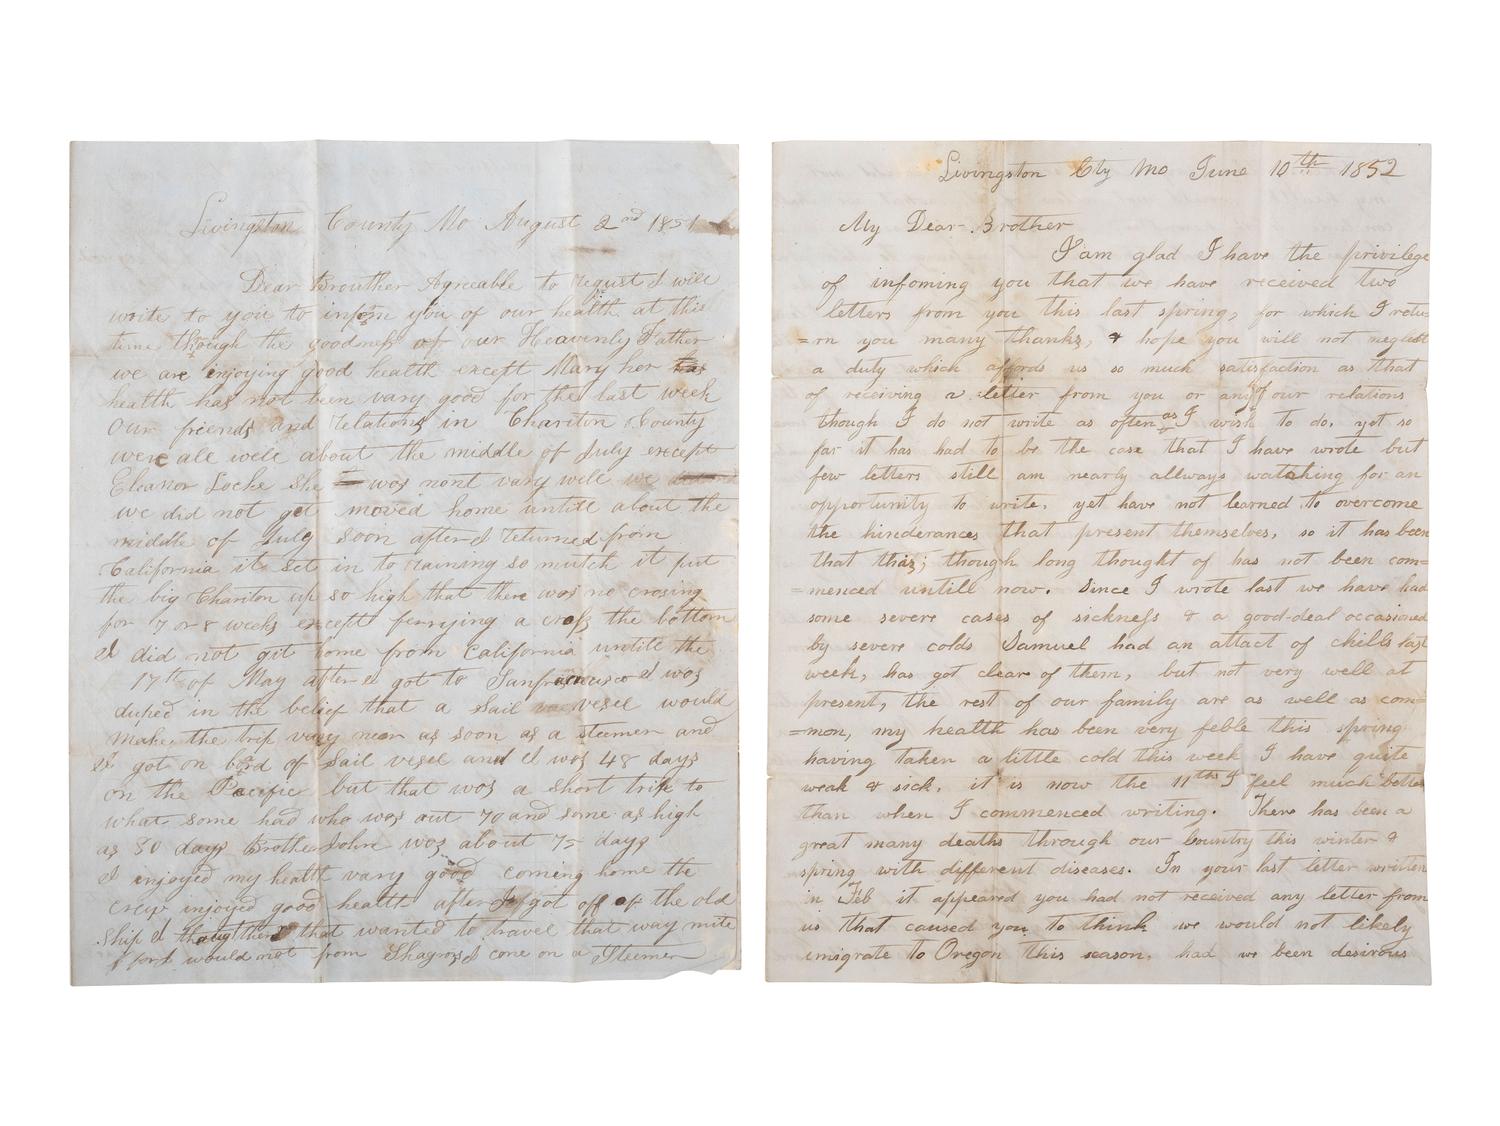 Livingston County Mo August 2nd 1851
Dear Brouther Agreable to request I will
write to you to inform you of our health at this
time through the goodness of our Heavenly Father
we are enjoying good health except Mary her
health has not been vary good for the last week
Our friends and relations in Chariton County
were all well about the middle of July except
Eleanor Locke she was nont vary well we
we did not get moved home untill about the
middle of July soon after I returned from
California it set in to raining so mutch it put
the big Chariton up so high that there was no crosing
for 7 or 8 weeks except ferrying a cross the bottom
I did not git home from California untill the
17th of May after I got to Sanfrancisco I was
duped in the belief that a Sail vesel would
make the trip vary near as soon as a steemer and
I got on bord of Sail vesel and I was 48 days
on the Pacific but that was a short trip to
what some had who was out 70 and some as high
as 80 days Brother John was about 75 days
I enjoyed my health vary good coming home the
crew injoyed good health after I got off of the old
Ship I thought that wanted to travel that way mite
I would not from I come on a Steemer
Livingston Cty Mo June 10th 1852
My Dear Brother
I am glad I have the privilege
of infoming you that we have received two
letters from you this last spring, for which I retu=
=rn you many thanks, & hope you will not neglect
a duty which affords us so much satisfaction as that
of receiving a letter from you or any of our relations
though I do not write as often as I wish to do, yet so
far it has had to be the case that I have wrote but
few letters still am nearly allways watching for an
opportunity to write, yet have not learned to overcome
the hinderances that present themselves, so it has been
that this; though long thought of has not been com=
=menced untill now. Since I wrote last we have had
some severe cases of sickness & a good-deal occasioned
by severe colds Samuel had an attact of chills last
week, has got clear of them, but not very well at
present, the rest of our family are as well as com=
=mon, my health has been very feble this spring
having taken a little cold this week I have quite
weak & sick, it is now the 11ths I feel much better
than when I commenced writing. There has been a
great many deaths through our Country this winter &
spring with different diseases. In your last letter written
in Feb it appeared you had not received any letter from
us that caused you to think we would not likely
imigrate to Oregon this season, had we been desirous